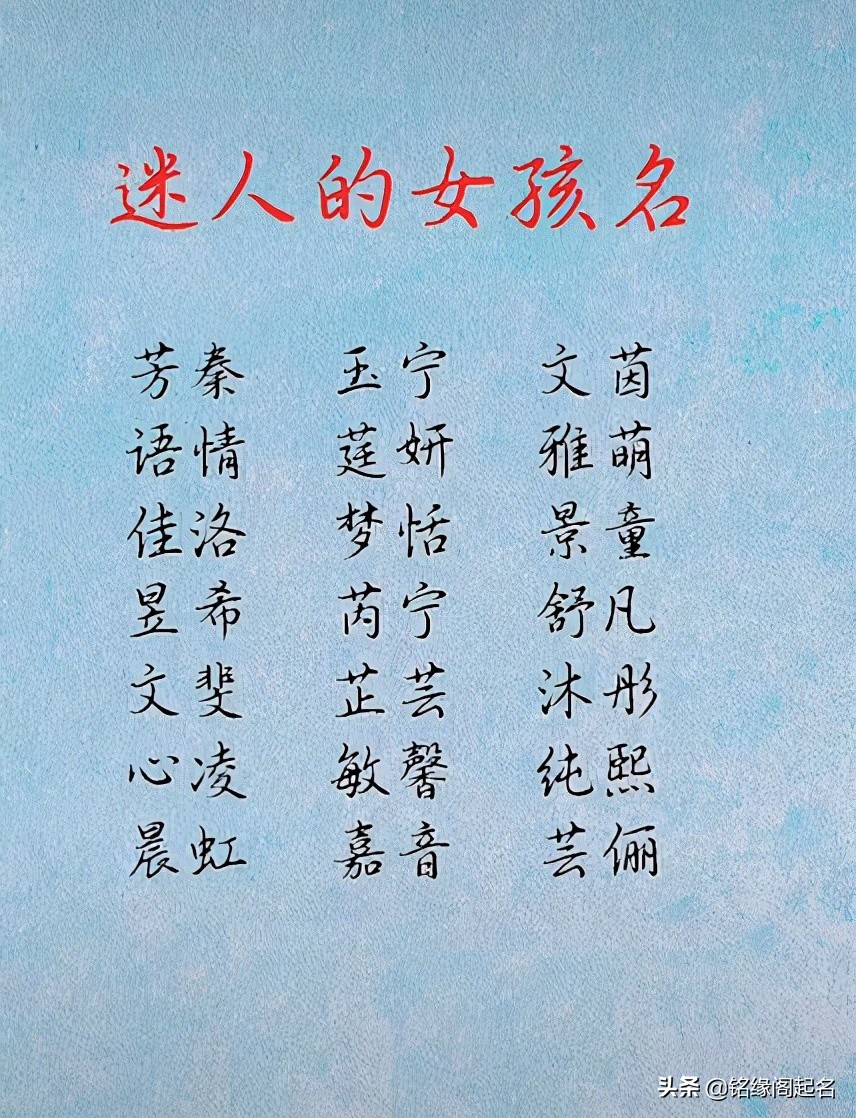 迷人的女孩名
芳秦 玉宁 文茵
语情 莛妍 雅萌
佳洛 梦恬 景童
昱希 芮宁 舒凡
文斐 芷芸 沐彤
心凌 敏馨 纯熙
晨虹 嘉音 芸俪
头条 @铭缘阁起名